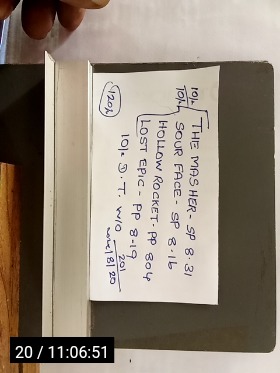 10% THE MASHER - SP 8.31
10% SOUR FACE - SP 8.16
HOLLOW ROCKET - PP 804
LOST EPIC - PP 8-19
10% D.T. W/O
201
18/20
120%
20 / 11:06:51